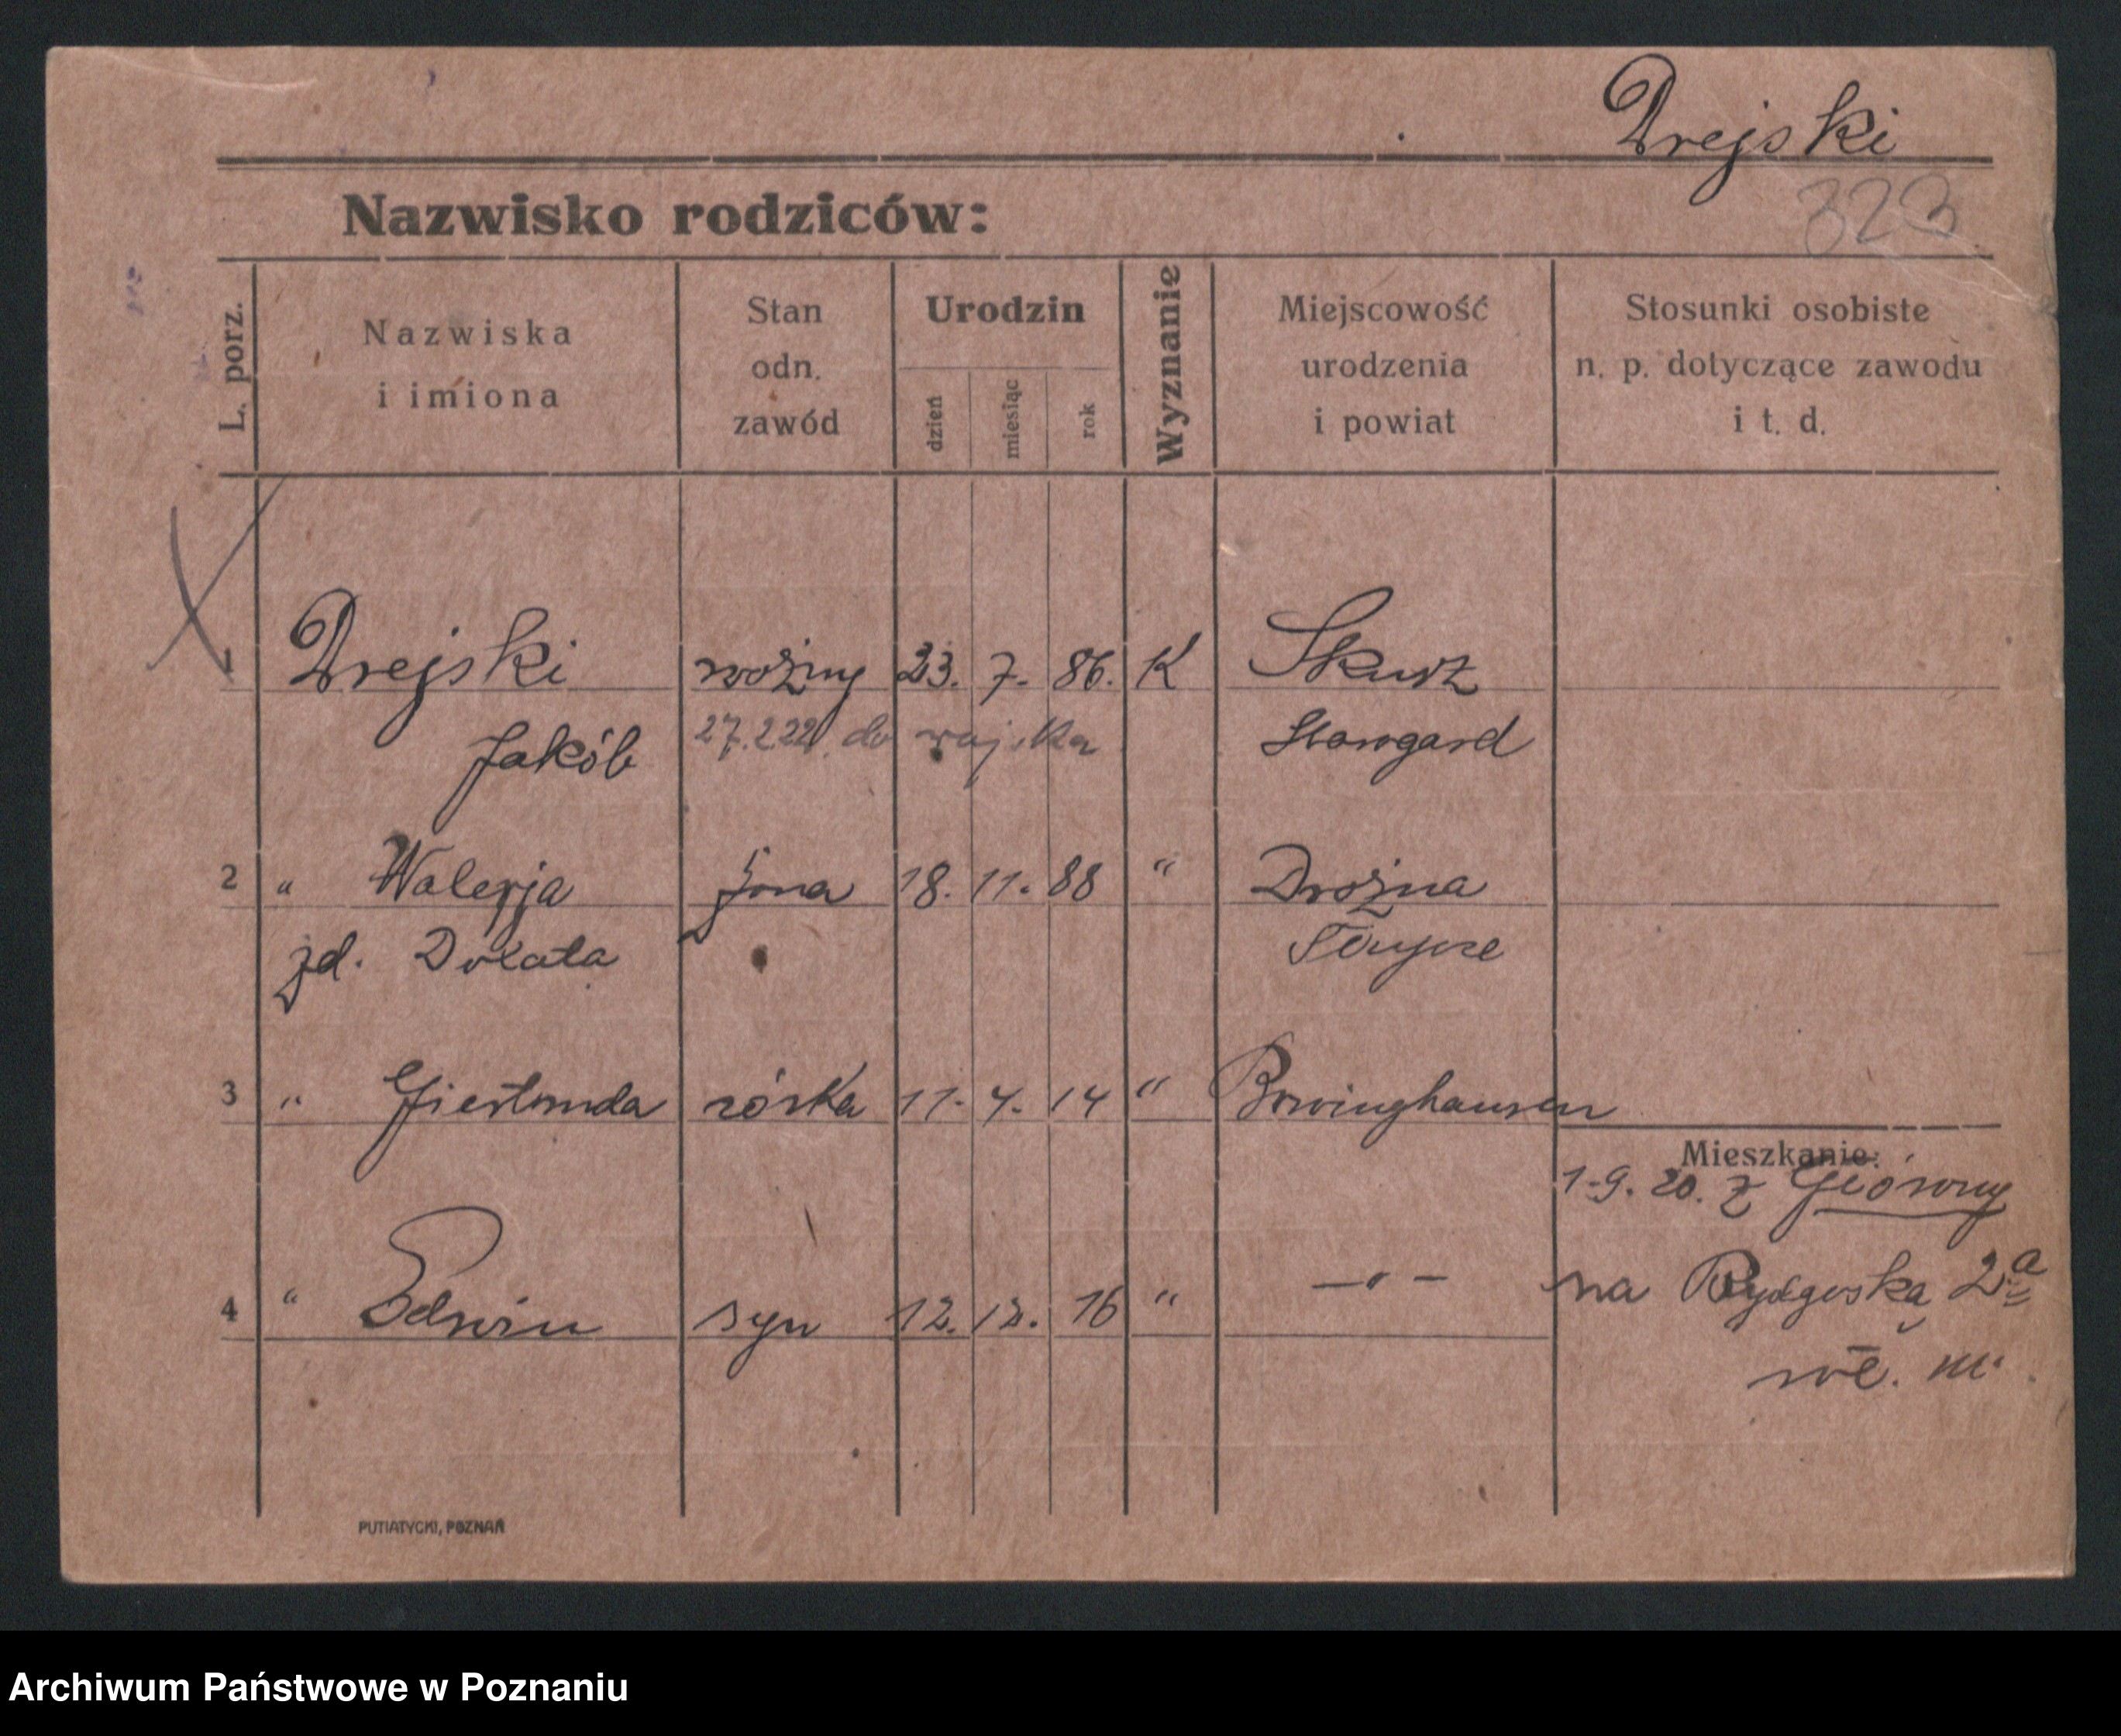 Drejski
323
Nazwisko rodziców:
L. porz.
Nazwiska
i imiona
Stan
odn.
zawód
Urodzin
dzień
miesiąc
rok
Wyznanie
Miejscowość
urodzenia
i powiat
Stosunki osobiste
n. p. dotyczące zawodu
i t. d.
1 Drejski woźny 23. 7. 86. K Skurz
Jakób 27.2.22 do wojska Starogard
2 " Walerja żona 18. 11. 88 " Drożna
zd. Dolata
3 " Giertruda córka 11. 4. 14 "
Mieszkanie:
1.9.20. z Głównej
4 " Edwin syn 12. 12. 16 " —"—
na Bydgoską 2a
wł. m.
PUTIATYCKI, POZNAŃ
Archiwum Państwowe w Poznaniu